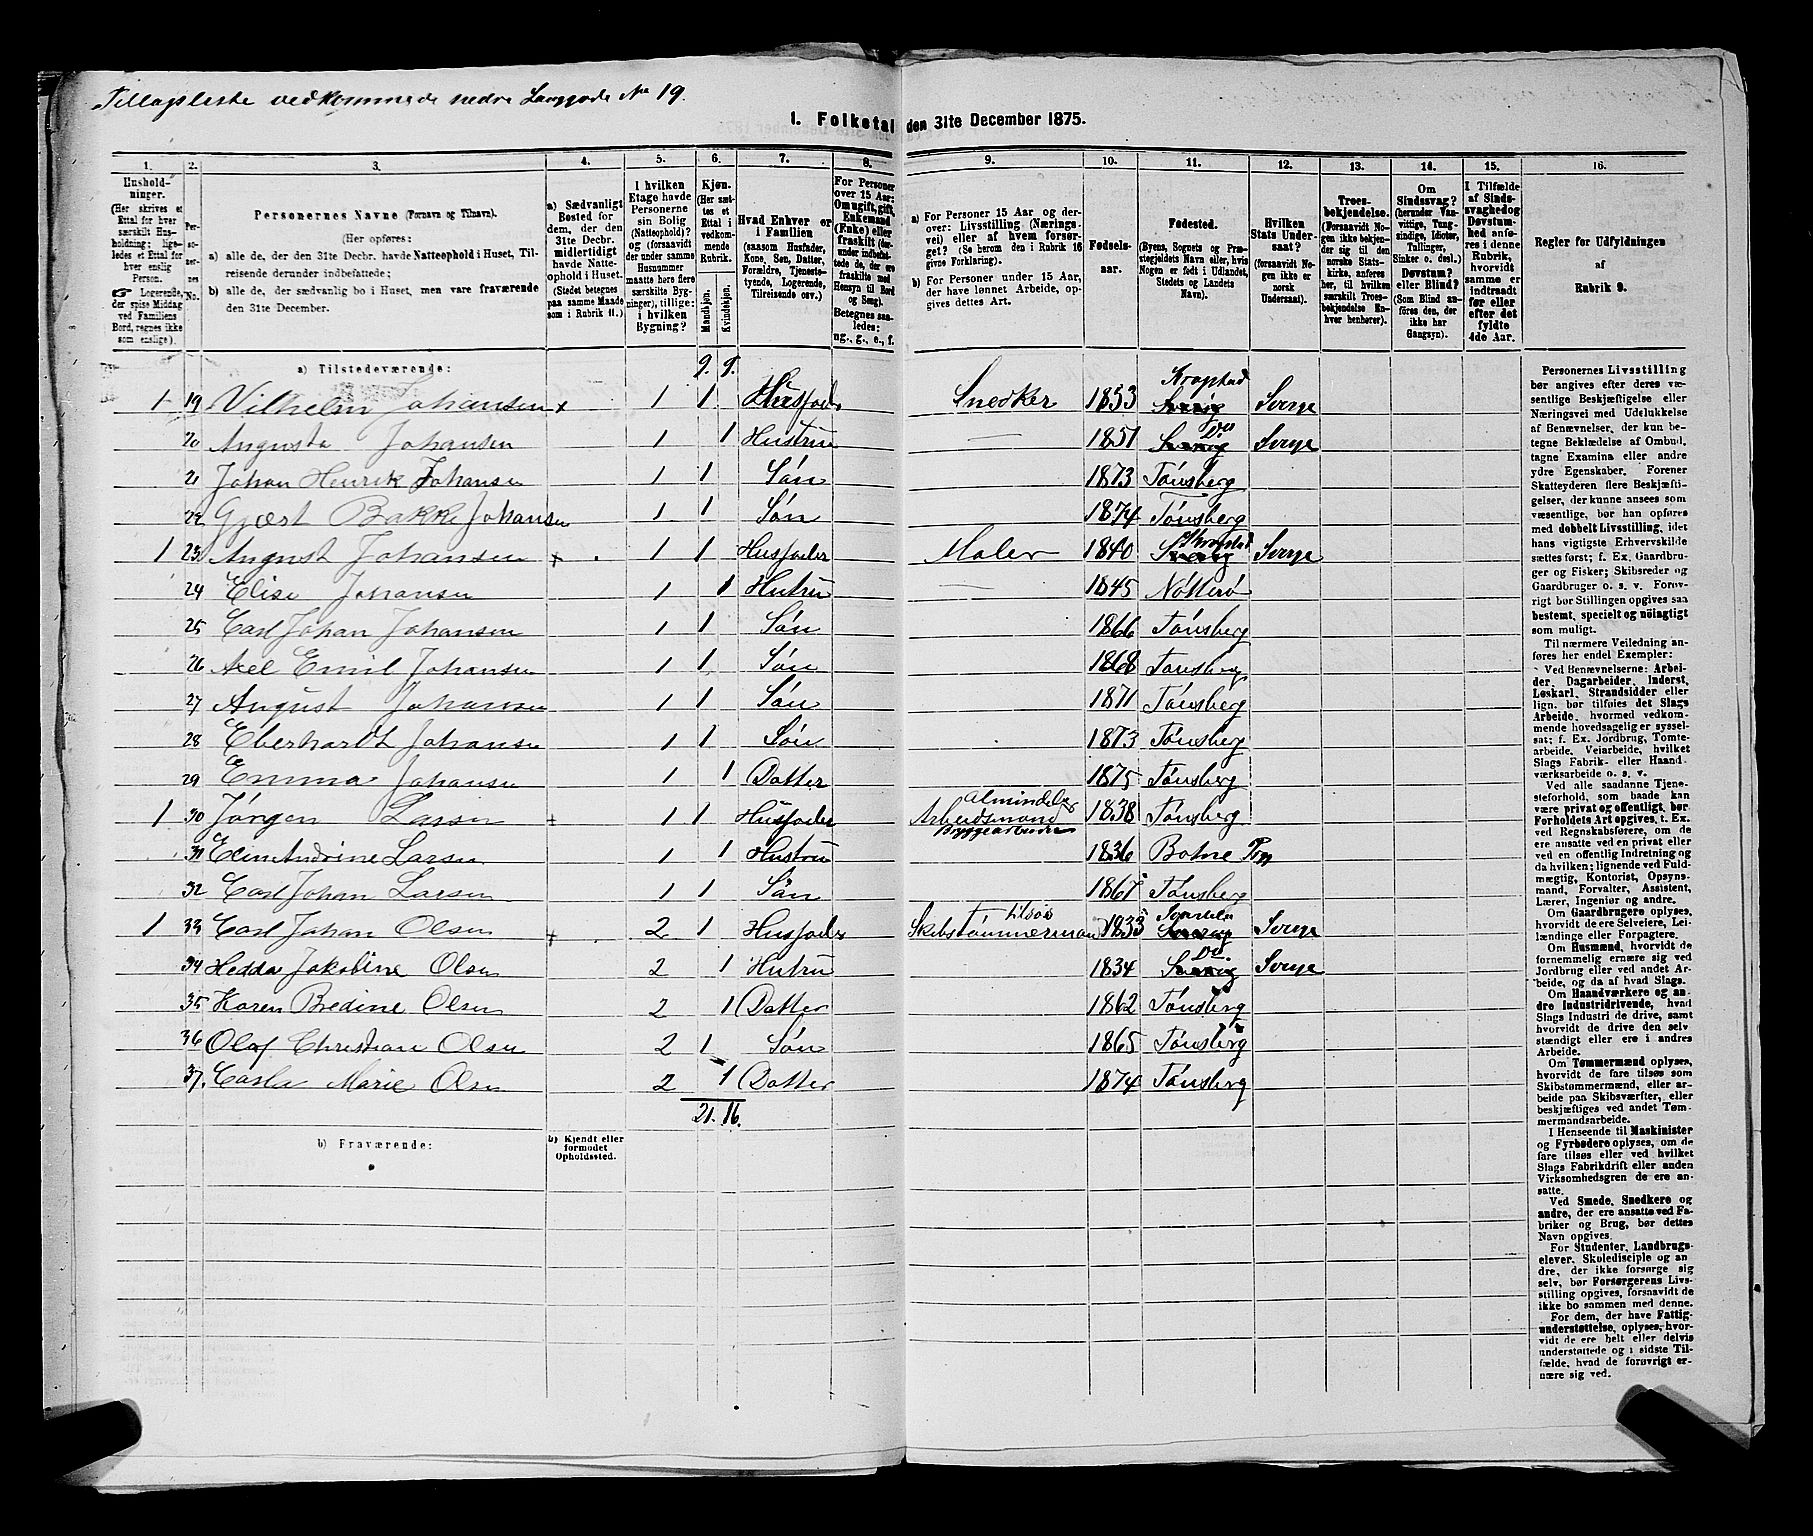 Tillægsliste vedkommende nedre Langgade No 19.
1. Folketal den 31te December 1875.
1. 2. 3. 4. 5. 6. 7. 8. 9. 10. 11. 12. 13. 14. 15. 16.
Husholdninger.
(Her skrives et Ettal for hver særskilt Husholdning; ligeledes et Ettal for hver enslig Person.
Logerende, der spise Middag ved Familiens Bord, regnes ikke som enslige).
Personernes No.
Personernes Navne (Fornavn og Tilnavn).
(Her opføres:
a) alle de, der den 31te Decbr. havde Natteophold i Huset, Tilreisende derunder indbefattede;
b) alle de, der sædvanlig bo i Huset, men vare fraværende den 31te December.
a) Sædvanligt Bosted for dem, der den 31te Decbr. midlertidigt havde Natteophold i Huset.
(Stedet betegnes paa samme Maade som i Rubrik 11.)
I hvilken Etage havde Personerne sin Bolig (Natteophold)? og (forsaavidt der under samme Husnummer maatte høre flere særskilte Bygninger), tillige: i hvilken Bygning?
Kjøn.
(Her sættes et Ettal i vedkommende Rubrik.
Mandkjøn. Kvindekjøn.
Hvad Enhver er i Familien
(saasom Husfader, Kone, Søn, Datter, Forældre, Tjenestetyende, Logerende, Tilreisende osv.)
For Personer over 15 Aar: Om ugift, gift, Enkemand (Enke) eller fraskilt
Betegnes saaledes: ug., g., e., f.
a) For Personer 15 Aar og derover: Livsstilling (Næringsvei) eller af hvem forsørget? (Se herom den i Rubrik 16 givne Forklaring).
b) For Personer under 15 Aar, der have lønnet Arbeide, opgives dettes Art.
Fødselsaar.
Fødested.
(Byens, Sognets og Præstegjeldets Navn eller, hvis Nogen er født i Udlandet, Stedets og Landets Navn).
Hvilken Stats Undersaat?
(forsaavidt Nogen ikke er norsk Undersaat).
Troesbekjendelse.
(Forsaavidt Nogen ikke bekjender sig til den norske Statskirke, anføres her, til hvilken særskilt Troesbekjendelse Enhver henhører).
Om Sindssvag? (herunder Vanvittige, Tungsindige, Idioter, Tullinger, Sinker o. desl.) Døvstum? eller Blind? (Som Blind anføres den, der ikke har Gangsyn).
I Tilfælde af Sindssvaghed og Døvstumhed anføres i denne Rubrik, hvorvidt samme er indtraadt før eller efter det fyldte 4de Aar.
Regler for Udfyldningen af Rubrik 9.
a) Tilstedeværende: 9. 9.
1 19 Vilhelm Johansen x 1 1 Husfader Snedker 1853 Kropstad Sverig Sverge
20 Augusta Johansen 1 1 Hustru — 1851 Do Sverig Sverge
21 Johan Henrik Johansen 1 1 Søn 1873 Tønsberg
22 Gjært Bakke Johansen 1 1 Søn 1874 Tønsberg
1 23 August Johansen + 1 1 Husfader Maler 1840 Sverig Sverge
24 Elise Johansen 1 1 Hutru — 1845 Nøtterø
25 Carl Johan Johansen 1 1 Søn 1866 Tønsberg
26 Axel Emil Johansen 1 1 Søn 1868 Tønsberg
27 August Johansen 1 1 Søn 1871 Tønsberg
28 Eberhardt Johansen 1 1 Søn 1873 Tønsberg
29 Emma Johansen 1 1 Datter 1875 Tønsberg
1 30 Jørgen Larsen + 1 1 Husfader Almindelig Arbeidsmand Bryggearbeider 1838 Tønsberg
31 Elim Andrine Larsen 1 1 Hustru 1836 Botne
32 Carl Johan Larsen 1 1 Søn 1867 Tønsberg
1 33 Carl Johan Olsen + 2 1 Husfader Skibstømmermand tilsøs 1833 Sverig Sverge
34 Hedda Jakobine Olsen 2 1 Hutru 1834 Do. Sverig Sverge
35 Karen Bredine Olsen 2 1 Datter 1862 Tønsberg
36 Olaf Christian Olsen 2 1 Søn 1865 Tønsberg
37. Carla Marie Olsen 2 1 Datter 1874 Tønsberg
21. 16.
b) Fraværende: b) Kjendt eller formodet Opholdssted.
Personernes Livsstilling
bør angives efter deres væ-
sentlige Beskjæftigelse eller
Næringsvei med Udelukkelse
af Benævnelser, der kun be-
tegne Beklædelse af Ombud,
tagne Examina eller andre
ydre Egenskaber. Forener
Skatteyderen flere Beskjæfti-
gelser, der kunne ansees som
væsentlige, bør han opføres
med dobbelt Livsstilling, idet
hans vigtigste Erhvervskilde
sættes først; f. Ex. Gaardbru-
ger og Fisker; Skibsreder og
Gaardbruger o. s. v. Forøv-
rigt bør Stillingen opgives saa
bestemt, specielt og nöiagtigt
som muligt.
Til nærmere Veiledning an-
føres her endel Exempler:
Ved Benævnelserne: Arbei-
der, Dagarbeider, Inderst,
Løskarl, Strandsidder eller
lign. bør tilføies det Slags
Arbeide, hvormed vedkom-
mende hovedsagelig er syssel-
sat; f. Ex. Jordbrug, Tomte-
arbeide, Veiarbeide, hvilket
Slags Fabrik- eller Haand-
værksarbeide o. s. v.
Ved alle saadanne Tjene-
steforhold, som baade kan
være privat og offentligt, bør
Forholdets Art opgives, t. Ex.
ved Regnskabsførere, om de
ere ansatte ved en privat eller
ved en offentlig Indretning og
da hvilken; lignende ved Fuld-
mægtig, Kontorist, Opsyns-
mand, Forvalter, Assistent,
Lærer, Ingeniør og andre.
Om Gaardbrugere oplyses,
hvorvidt de ere Selveiere, Lei-
lændinge eller Forpagtere.
Om Husmænd, hvorvidt de
fornemmelig ernære sig ved
Jordbrug eller ved andet Ar-
beide, og da af hvad Slags.
Om Haandværkere og an-
dre Industridrivende, hvad
Slags Industri de drive, samt
hvorvidt de drive den selv-
stændigt eller ere i andres
Arbeide.
Om Tømmermænd oplyses,
hvorvidt de fare tilsøs som
Skibstømmermænd, eller ar-
beide paa Skibsværfter, eller
beskjæftiges ved andet Tøm-
mermandsarbeide.
I Henseende til Maskinister
og Fyrbødere oplyses, om de
fare tilsøs eller ved hvilket
Slags Fabrikdrift eller anden
Virksomhedsgren de ere an-
satte.
Ved Smede, Snedkere og
andre, der ere ansatte ved Fa-
briker og Brug, bør dettes
Navn opgives.
For Studenter, Landbrugs-
elever, Skoledisciple og an-
dre, der ikke forsørge sig
selv, bør Forsørgerens Livs-
stilling opgives, forsaavidt de
ikke bo sammen med denne.
For dem, der have Fattig-
understøttelse, oplyses, hvor-
vidt de ere helt eller delvis
understøttede og i sidste Til-
fælde, hvad de forøvrigt er-
nære sig ved.